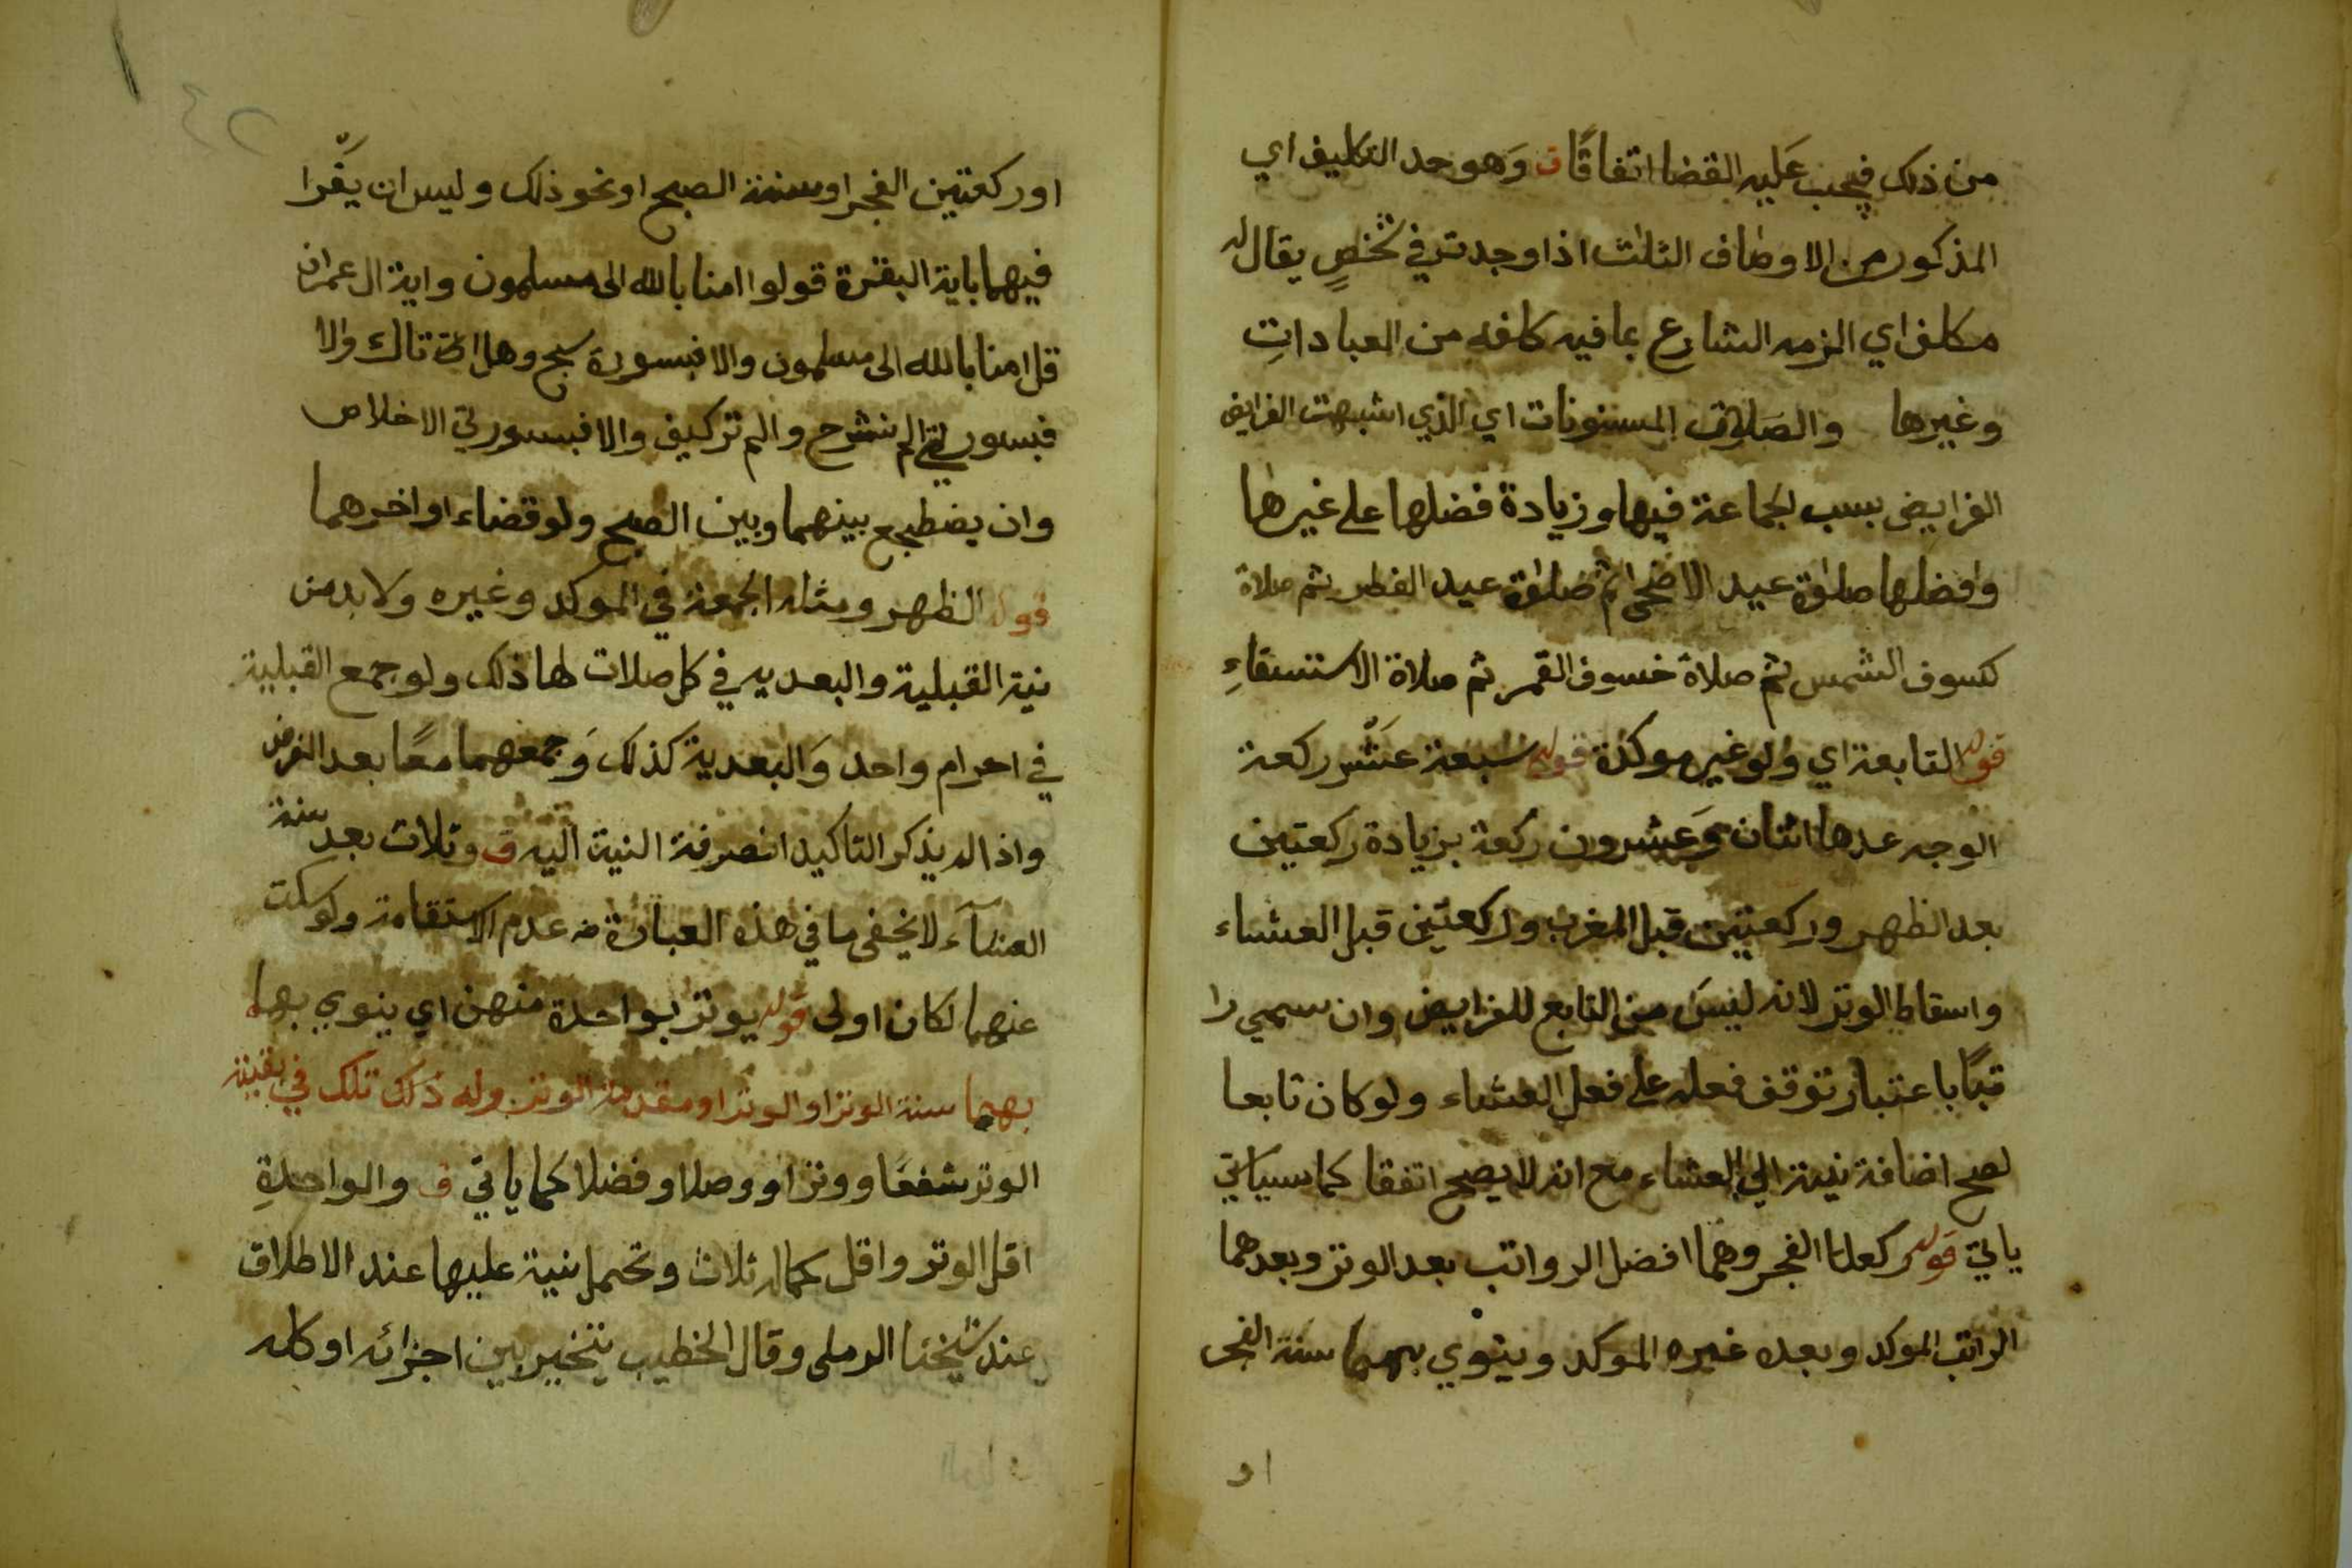 من ذلك فيجب عليه القضا اتفاقا ق وهو حد التكليف اي
المذكور من الاوصاف الثلث اذا وجدت في شخص يقال له
مكلف اي الزمه الشارع بما فيه كلفه من العبادات
وغيرها والصلوات المسنونات اي الذي اشبهت الفرايض
الفرايض بسبب الجماعة فيها وزيادة فضلها على غيرها
وافضلها صلوة عيد الاضحى ثم صلوة عيد الفطر ثم صلاة
كسوف الشمس ثم صلاة خسوف القمر ثم صلاة الاستسقاء
قوله التابعة اي ولو غير موكدة قوله سبعة عشر ركعة
الوجه عدها اثنان وعشرون ركعة بزيادة ركعتين
بعد الظهر وركعتين قبل المغرب وركعتين قبل العشاء
واسقاط الوتر لانه ليس من التابع للفرايض وان سمي را
تبًا باعتبار توقف فعله على فعل العشاء ولو كان تابعا
لصح اضافة نيته الي العشاء مع انه لا يصح اتفقا كما سياتي
ياتي قوله ركعتا الفجر وهما افضل الرواتب بعد الوتر وبعدهما
الراتب الموكد وبعده غيره الموكد وينوي بهما سنة الفجر
او
اور كعتين الفجر او سنة الصبح او نحو ذلك وليس ان يقرا
فيهما باية البقرة قولوا امنا بالله الى مسلمون واية ال عمران
قل امنا بالله الى مسلمون والا فبسورة سبح وهل اتى تاك والا
فبسورتي الم نشرح والم تركيف والا فبسورتي الاخلاص
وان يضطجع بينهما وبين الصبح ولو قضاء او اخرهما
قوله الظهر ومثله الجمعة في الموكد وغيره ولا بد من
نية القبلية والبعديه في كل صلات لها ذلك ولو جمع القبلية
في احرام واحد والبعدية كذلك وجمعهما معًا بعد الفرض
واذا لم يذكر التاكيد انصرفة النية اليه ق وثلاث بعد سنة
العشاء لا يخفى ما في هذه العبارة من عدم الاستقامة ولو سكت
عنهما لكان اولى قوله يوتر بواحدة منهن اي ينوي بهما
بهما سنة الوتر او الوتر او مقدمة الوتر وله ذلك تلك في بقية
الوتر شفعًا ووترا او وصلا وفضلا كما ياتي ق والواحدة
اقل الوتر واقل كماله ثلاث وتحمل نية عليها عند الاطلاق
عند شيخنا الرملي وقال الخطيب يتخير بين اجزائه او كله